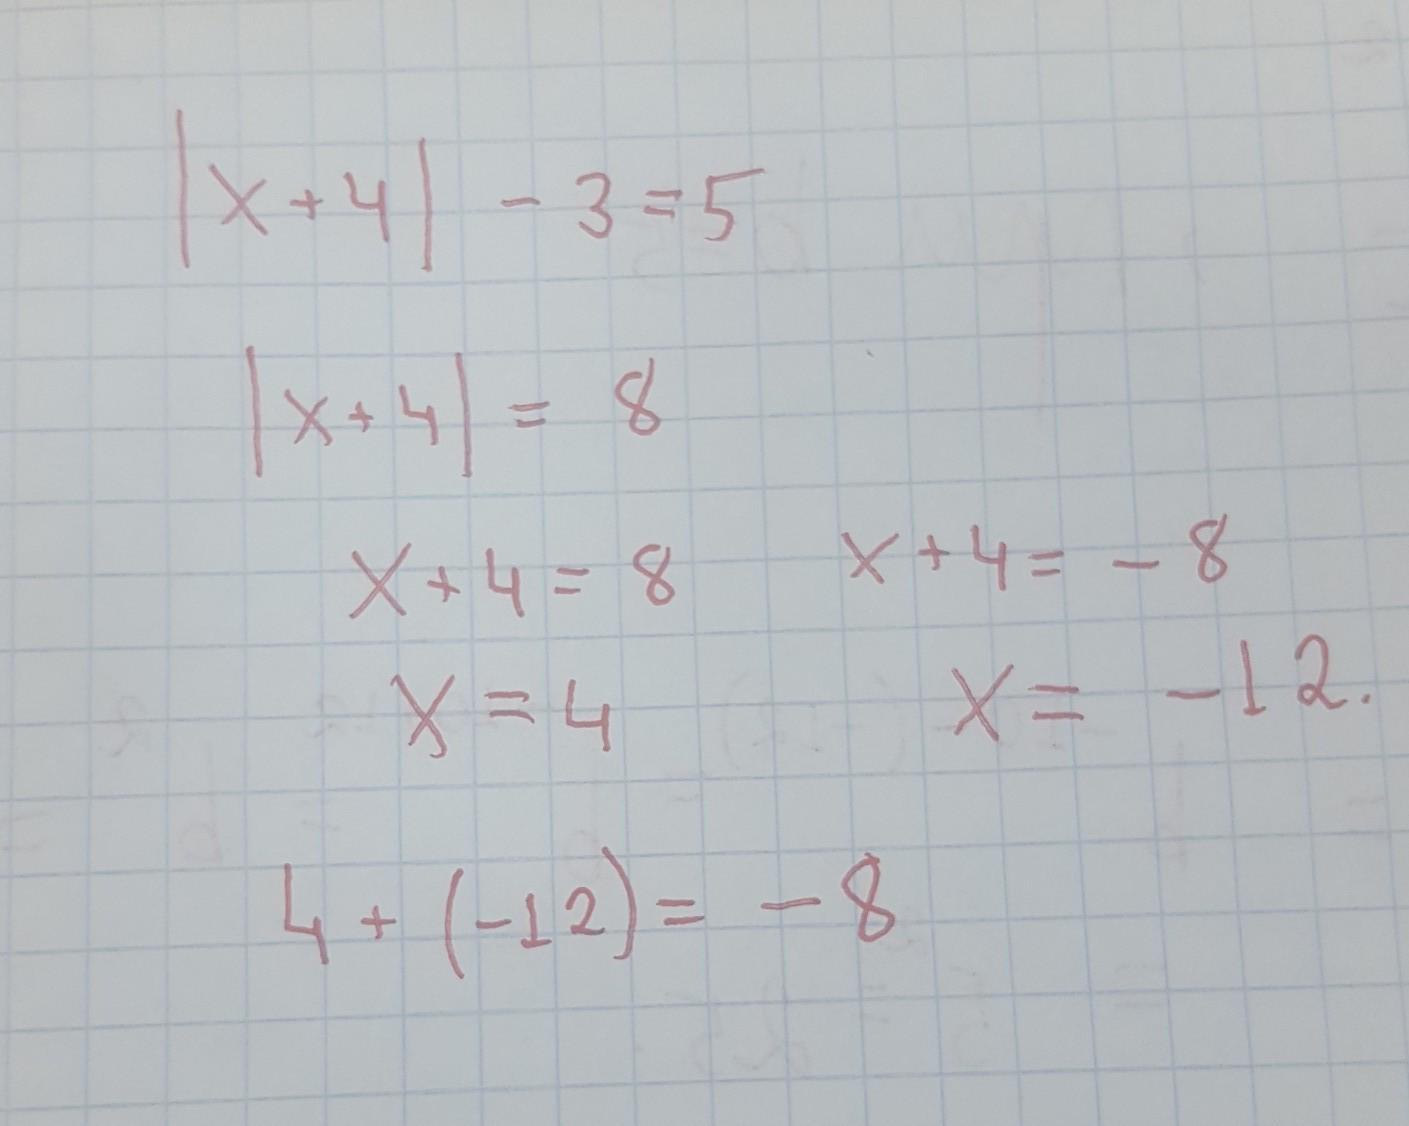 |x+4| - 3 = 5
|x+4| = 8
x+4 = 8 x+4 = -8
x = 4 x = -12.
4 + (-12) = -8